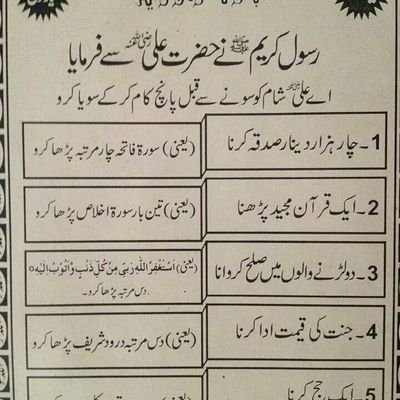 رسول کریم ﷺ نے حضرت علی رضی اللہ عنہ سے فرمایا
اے علی شام کو سونے سے قبل پانچ کام کر کے سویا کرو
1۔ چار ہزار دینار صدقہ کرنا
(یعنی) سورۃ فاتحہ چار مرتبہ پڑھا کرو
2۔ ایک قرآن مجید پڑھنا
(یعنی) تین بار سورۃ اخلاص پڑھا کرو
3۔ دو لڑنے والوں میں صلح کروانا
(یعنی) اَسْتَغْفِرُ اللّٰہَ رَبِّیْ مِنْ كُلِّ ذَنْبٍ وَّاَتُوْبُ اِلَیْہِ
دس مرتبہ پڑھا کرو۔
4۔ جنت کی قیمت ادا کرنا
(یعنی) دس مرتبہ درود شریف پڑھا کرو
5۔ ایک حج کرنا